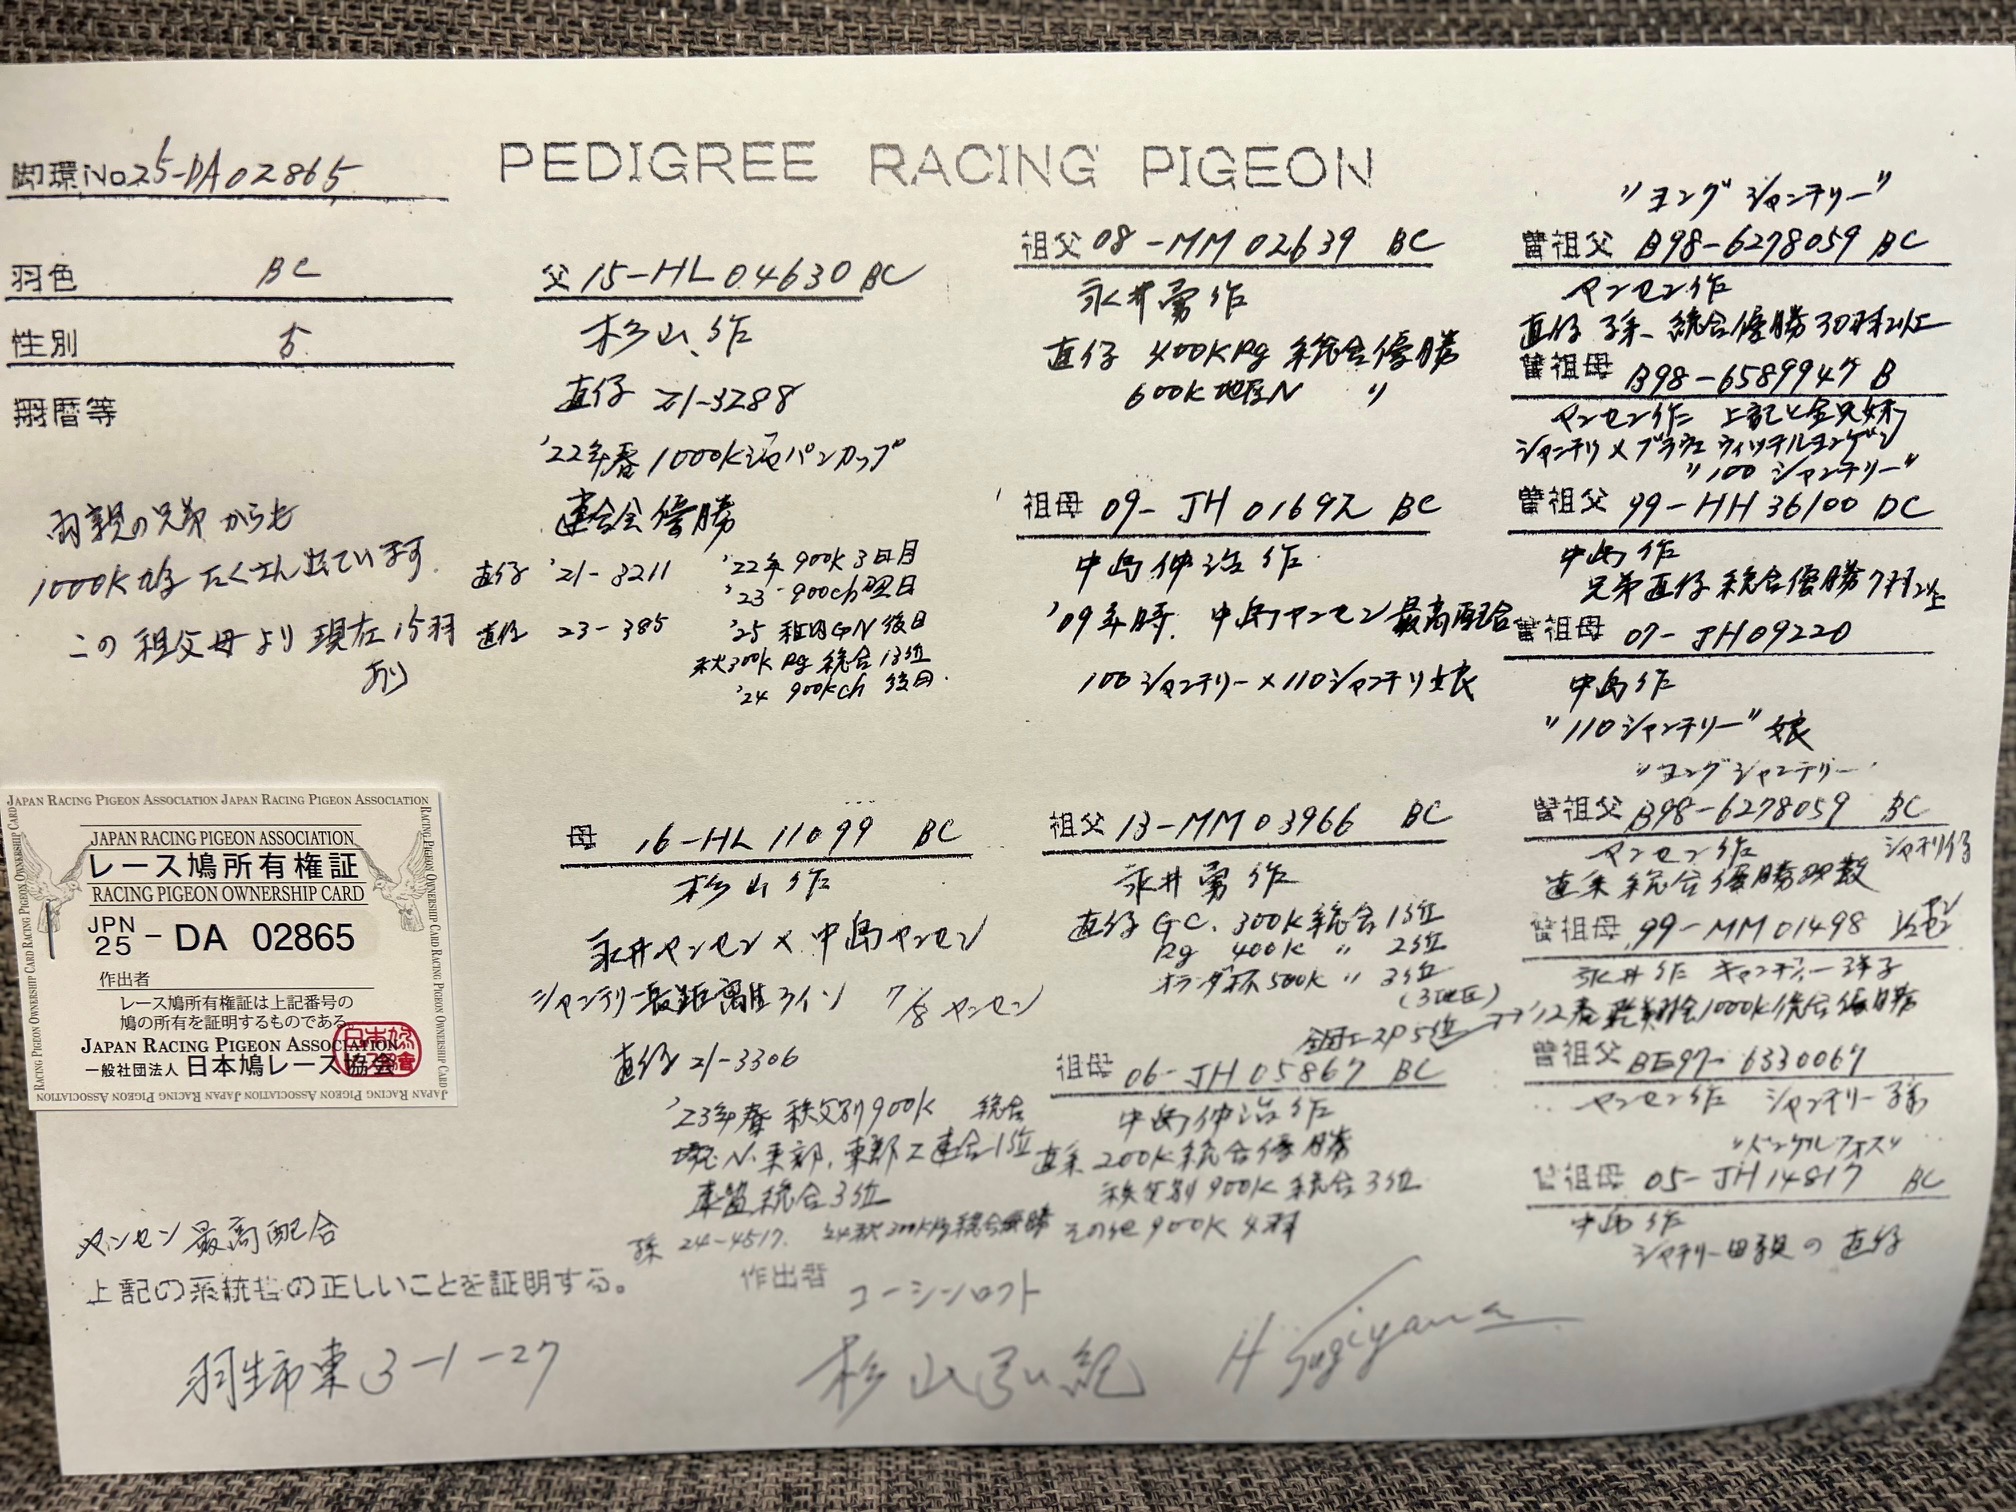 PEDIGREE RACING PIGEON
脚環No 25-DA02865
羽色 BC
性別
翔暦等
両親の兄弟からも
1000K たくさん出ています.
この祖父母より現在15羽
父 15-HL 04630 BC
杉山 作
直仔 21-3288
'22年春 1000Kジャパンカップ
連合会優勝
直仔 '21-3211 '22年 900K 3日目
'23 900ch 翌日
直仔 23-385 '25 稚内GN 後日
秋300K Rg 総合13位
'24 900Kch 後日.
母 16-HL 11099 BC
杉山 作
永井ヤンセン×中島ヤンセン
シャンテリー最短距離生ライン 7/8 ヤンセン
直仔 21-3306
'23年春 秩父別900K 総合
N.東部.東部 連合1位
連盟総合3位
孫 24-4517. 24秋300K 総合優勝
祖父 08-MM 02639 BC
永井勇 作
直仔 400KRg 総合優勝
600K地区N 〃
祖母 09-JH 01692 BC
中島仲治 作
'09年時. 中島ヤンセン最高配合
100シャンテリー×110シャンテリ娘
祖父 13-MM 03966 BC
永井勇 作
直仔 GC. 300K総合1位
Rg 400K 〃 2位
オランダ杯500K 〃 3位
(3地区)
祖母 06-JH 05867 BC
中島仲治 作
直系 200K総合優勝
秩父別900K 総合3位
その他 900K 4羽
"ヨング シャンテリー"
曽祖父 B98-6278059 BC
ヤンセン作
直仔 孫 総合優勝30羽以上
曽祖母 B98-6589947 B
ヤンセン作 上記と全兄妹
シャンテリ×ブラウエ ウィッテルヨンゲン
"100 シャンテリー"
曽祖父 99-HH 36100 DC
中島 作
兄弟直仔 総合優勝7羽以上
曽祖母 07-JH09220
中島作
"110シャンテリー" 娘
"ヨングシャンテリー
曽祖父 B98-6278059 BC
ヤンセン作 シャンテリ仔
直系 総合優勝羽数
曽祖母 99-MM 01498
永井 作
'12春 1000K総合優勝
曽祖父 BE97-6330067
ヤンセン作 シャンテリー孫
"ドンケルフォス"
曽祖母 05-JH 14817 BC
中島 作
シャンテリー両親の直仔
JAPAN RACING PIGEON ASSOCIATION JAPAN RACING PIGEON ASSOCIATION
JAPAN RACING PIGEON ASSOCIATION
レース鳩所有権証
RACING PIGEON OWNERSHIP CARD
JPN 25 - DA 02865
作出者
レース鳩所有権証は上記番号の
鳩の所有を証明するものである。
JAPAN RACING PIGEON ASSOCIATION
一般社団法人 日本鳩レース協会
ヤンセン最高配合
上記の系統書の正しいことを証明する。
作出者 コーシンロフト
羽生市東3-1-27
杉山弘紀 H Sugiyama